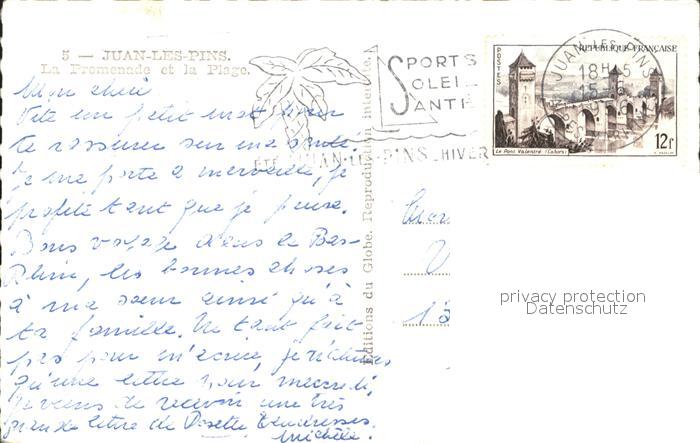 5 — JUAN-LES-PINS.
La Promenade et la Plage.
Mon chéri
Vite un petit mot pour
te rassurer sur ma santé.
Je me porte à merveille, je
profite tant que je puisse.
Bons voyage dans le Bas-
Rhin, les bonnes choses
à ma sœur ainsi qu'à
ta famille. Ne tant fait
pas pour m'écrire, je n'attends
qu'une lettre pour mercredi,
je viens de recevoir une très
grande lettre de Dosette Tendresses.
Michèle.
Editions du Globe. Reproduction interdite.
SPORTS
SOLEIL
SANTÉ
ÉTÉ JUAN-LES-PINS HIVER
JUAN-LES-PINS
18H15
REPUBLIQUE FRANÇAISE
POSTES
12f
Le Pont Valentré (Cahors)
privacy protection
Datenschutz